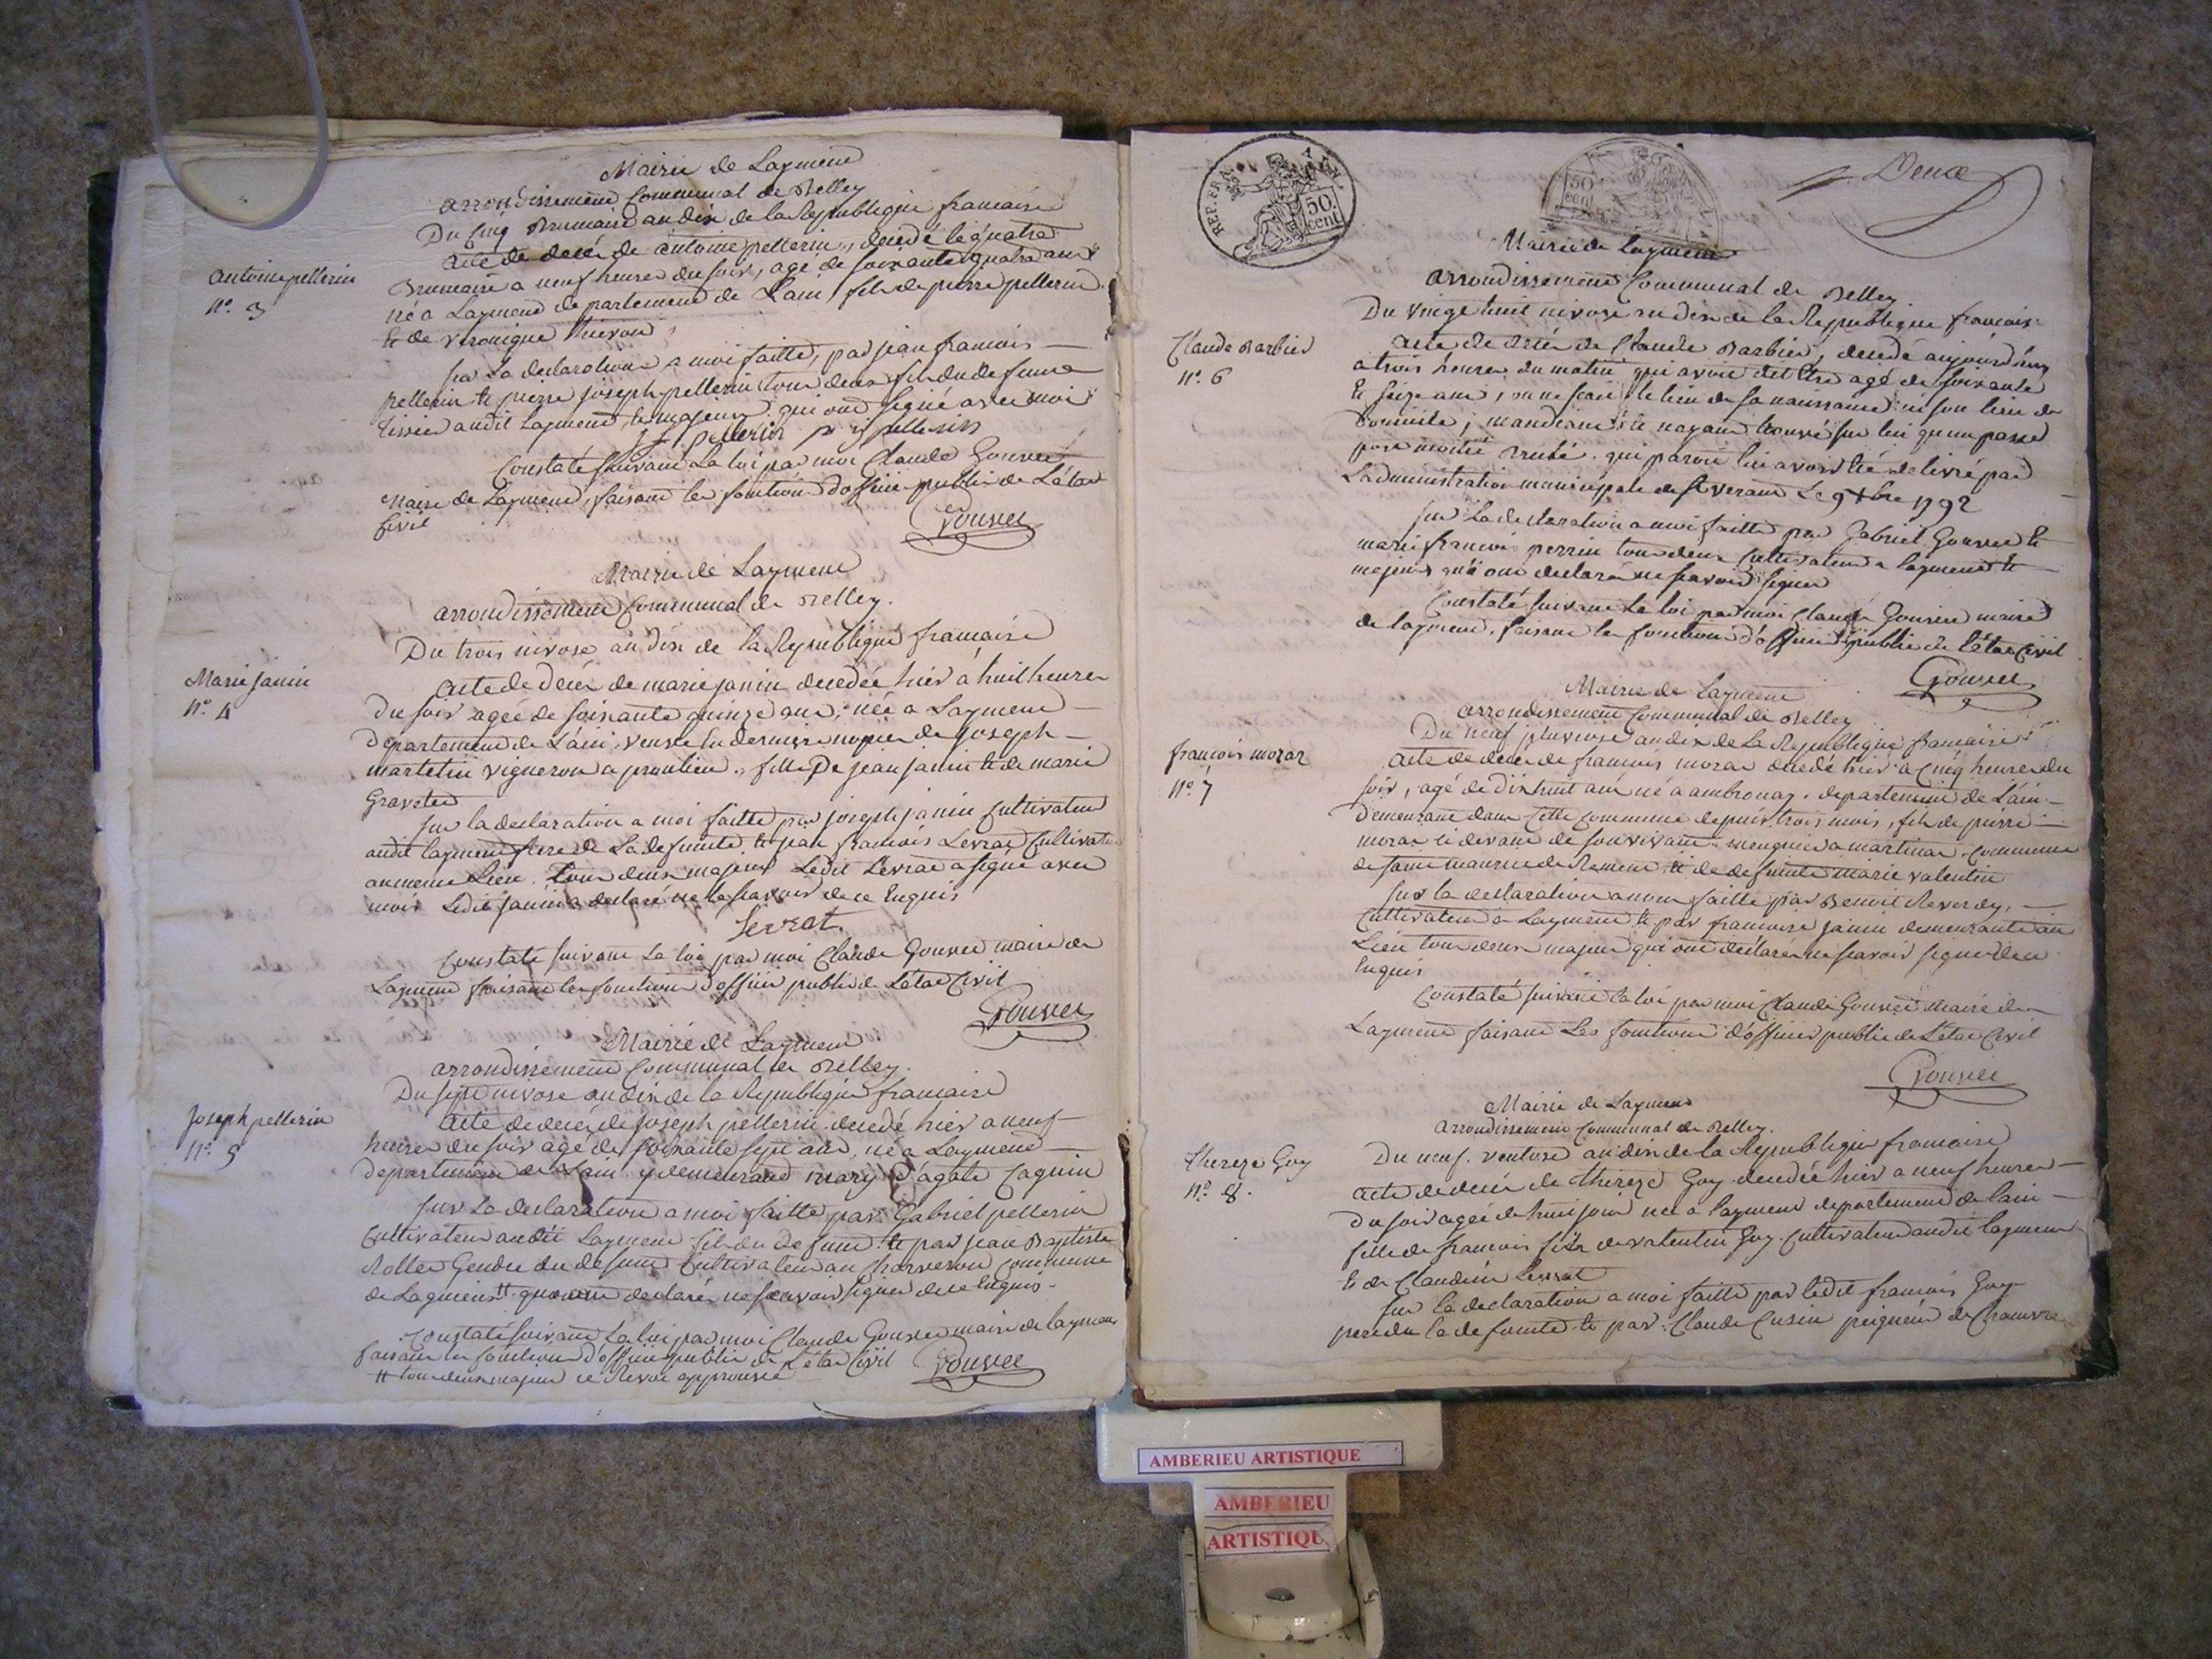 Mairie de Laymend
arrondissement Communal de Belley
Du Cinq Brumaire an dix de la Republique francaise
acte de decés de antoine pellerin, decedé le quatre
antoine pellerin
n.o 3
Brumaire a neuf heures du soir, agé de soixante quatre ans
né a Laymend departement de Lain, fils de pierre pellerin
et de veronique
sur La declaration a moi faitte, par jean francois
pellerin et pierre joseph pellerin tous deux fils du defunt
audit Laymend, et majeurs qui ont signé avec moi
pellerin p j pellerin
Constaté suivant La loi par moi Claude Gouvee
Maire de Laymend, faisant les fonctions d'officier public de L'état
Civil
Gouvee
Mairie de Laymend
arrondissement Communal de Belley.
Du trois nivose an dix de la Republique francaise
Marie janin
n.o 4
acte de décés de marie janin decedée hier à huit heures
du soir agée de soixante quinze ans, née a Laymend
departement de L'ain, veuve en dernieres nopces de joseph
martelin vigneron a proulieu, fille De jean janin et de marie
sur la declaration a moi faitte par joseph janin Cultivateur
audit laymend frere de La defunte, et jean francois Levrat Cultivateur
au meme Lieu. Tous deux majeurs Ledit Levrat a signé avec
moi Ledit janin a declaré ne le scavoir de ce Enquis
Levrat.
Constaté suivant La loi par moi Claude Gouvee maire de
Laymend faisant les fonctions d'officier public de L'état Civil
Gouvee
Mairie de Laymend
arrondissement Communal de Belley.
Du sept nivose an dix de la Republique francaise
Joseph pellerin
n.o 5
acte de decés de joseph pellerin decedé hier a neuf
heures du soir agé de soixante sept ans, né a Laymend
departement de Lain y demeurant mary d'agate Caguin
sur La declaration a moi faitte par Gabriel pellerin
Cultivateur audit Laymend fils du defunt et par jean Baptiste
Rollet Gendre du defunt Cultivateur au Charveron Commune
de Lagnieu # qui ont declaré ne scavoir signer de ce Enquis.
Constaté suivant La loi par moi Claude Gouvee maire de laymend
faisant les fonctions d'officier public de L'état Civil Gouvee
# tous deux majeurs ce Renvoi approuvé
REP. FRA. 50. cent
50 cent
Deux
Mairie de laymend
arrondissement Communal de Belley.
Du vingt huit nivose an dix de la Republique francaise
Claude Barbier
n.o 6
acte de décés de Claude Barbier, decedé aujourd'huy
a trois heures du matin qui avoit dit Etre agé de soixante
Et seize ans, on ne scait le lieu de sa naissance ni son lieu de
domicile; mandiant et nayant trouvé sur lui qu'un passe
port moitié brulé. qui paroit lui avoir été delivré par
Ladministration municipale de Le 9 xbre 1792
sur La declaration a moi faitte par Gabriel Gouvee et
marie francois perrin tous deux Cultivateurs a laymend et
majeurs qui ont declaré ne scavoir signer
Constaté suivant La loi par moi Claude Gouvee maire
de laymend, faisant les fonctions d'officier public de l'état Civil
Gouvee
Mairie de Laymend
arrondissement Communal de Belley
Du neuf pluviose an dix de La Republique francaise
francois moras
n.o 7
acte de decés de francois moras decedé hier a Cinq heures du
soir, agé de dix huit ans né a ambronay. departement de L'ain
demeurant dans Cette Commune depuis trois mois, fils de pierre
moras ci devant de son vivant meugnier a martinas. Commune
de saint maurice de Remens et de defunte marie valentin
sur la declaration a nous faitte par Benoit Reverdy,
Cultivateur a Laymend et par francoise janin demeurante au
Lieu tous deux majeurs qui ont déclarés ne scavoir signer de ce
Enquis
Constaté suivant la loi par moi Claude Gouvee Maire de
Laymend faisant Les fonctions d'officier public de L'état Civil
Gouvee
Mairie de Laymend
arrondissement Communal de Belley.
Du neuf. ventose an dix de la Republique francaise
Thereze Goy
n.o 8.
acte de decés de thereze Goy decedée hier a neuf heures
du soir agée de huit jours née a laymend departement de lain
fille de francois fils de valentin Goy. Cultivateur audit laymend
Et de Claudine Levrat
sur la declaration a moi faitte par ledit francois Goy
pere de la defunte et par Claude Cusin peigneur de Chanvre
AMBERIEU ARTISTIQUE
AMBERIEU
ARTISTIQU